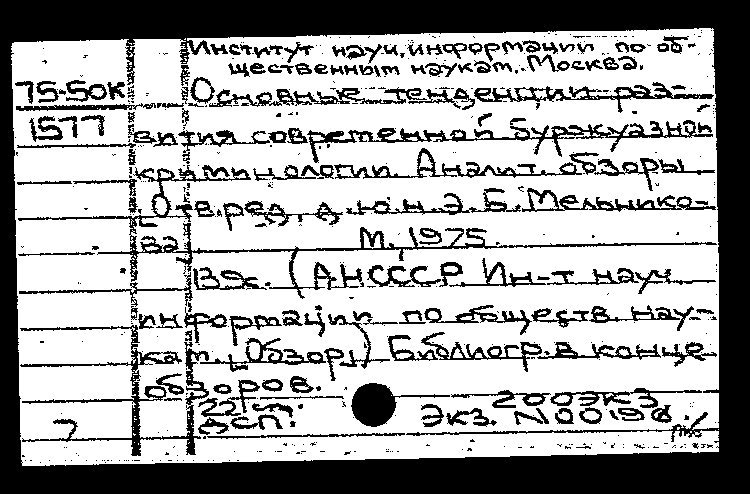 Институт науч. информации по об-
щественным наукам. Москва.
75-50к
Основные тенденции раз-
1577
вития современной буржуазной
криминологии. Аналит. обзоры.
[Отв. ред. д.ю.н. Э.Б. Мельнико-
ва]
М., 1975.
139с. (АН СССР. Ин-т науч.
информации по обществ. нау-
кам. [Обзор]) Библиогр. в конце
обзоров.
22см.
200экз.
ДСП.
Экз. N00198.
7